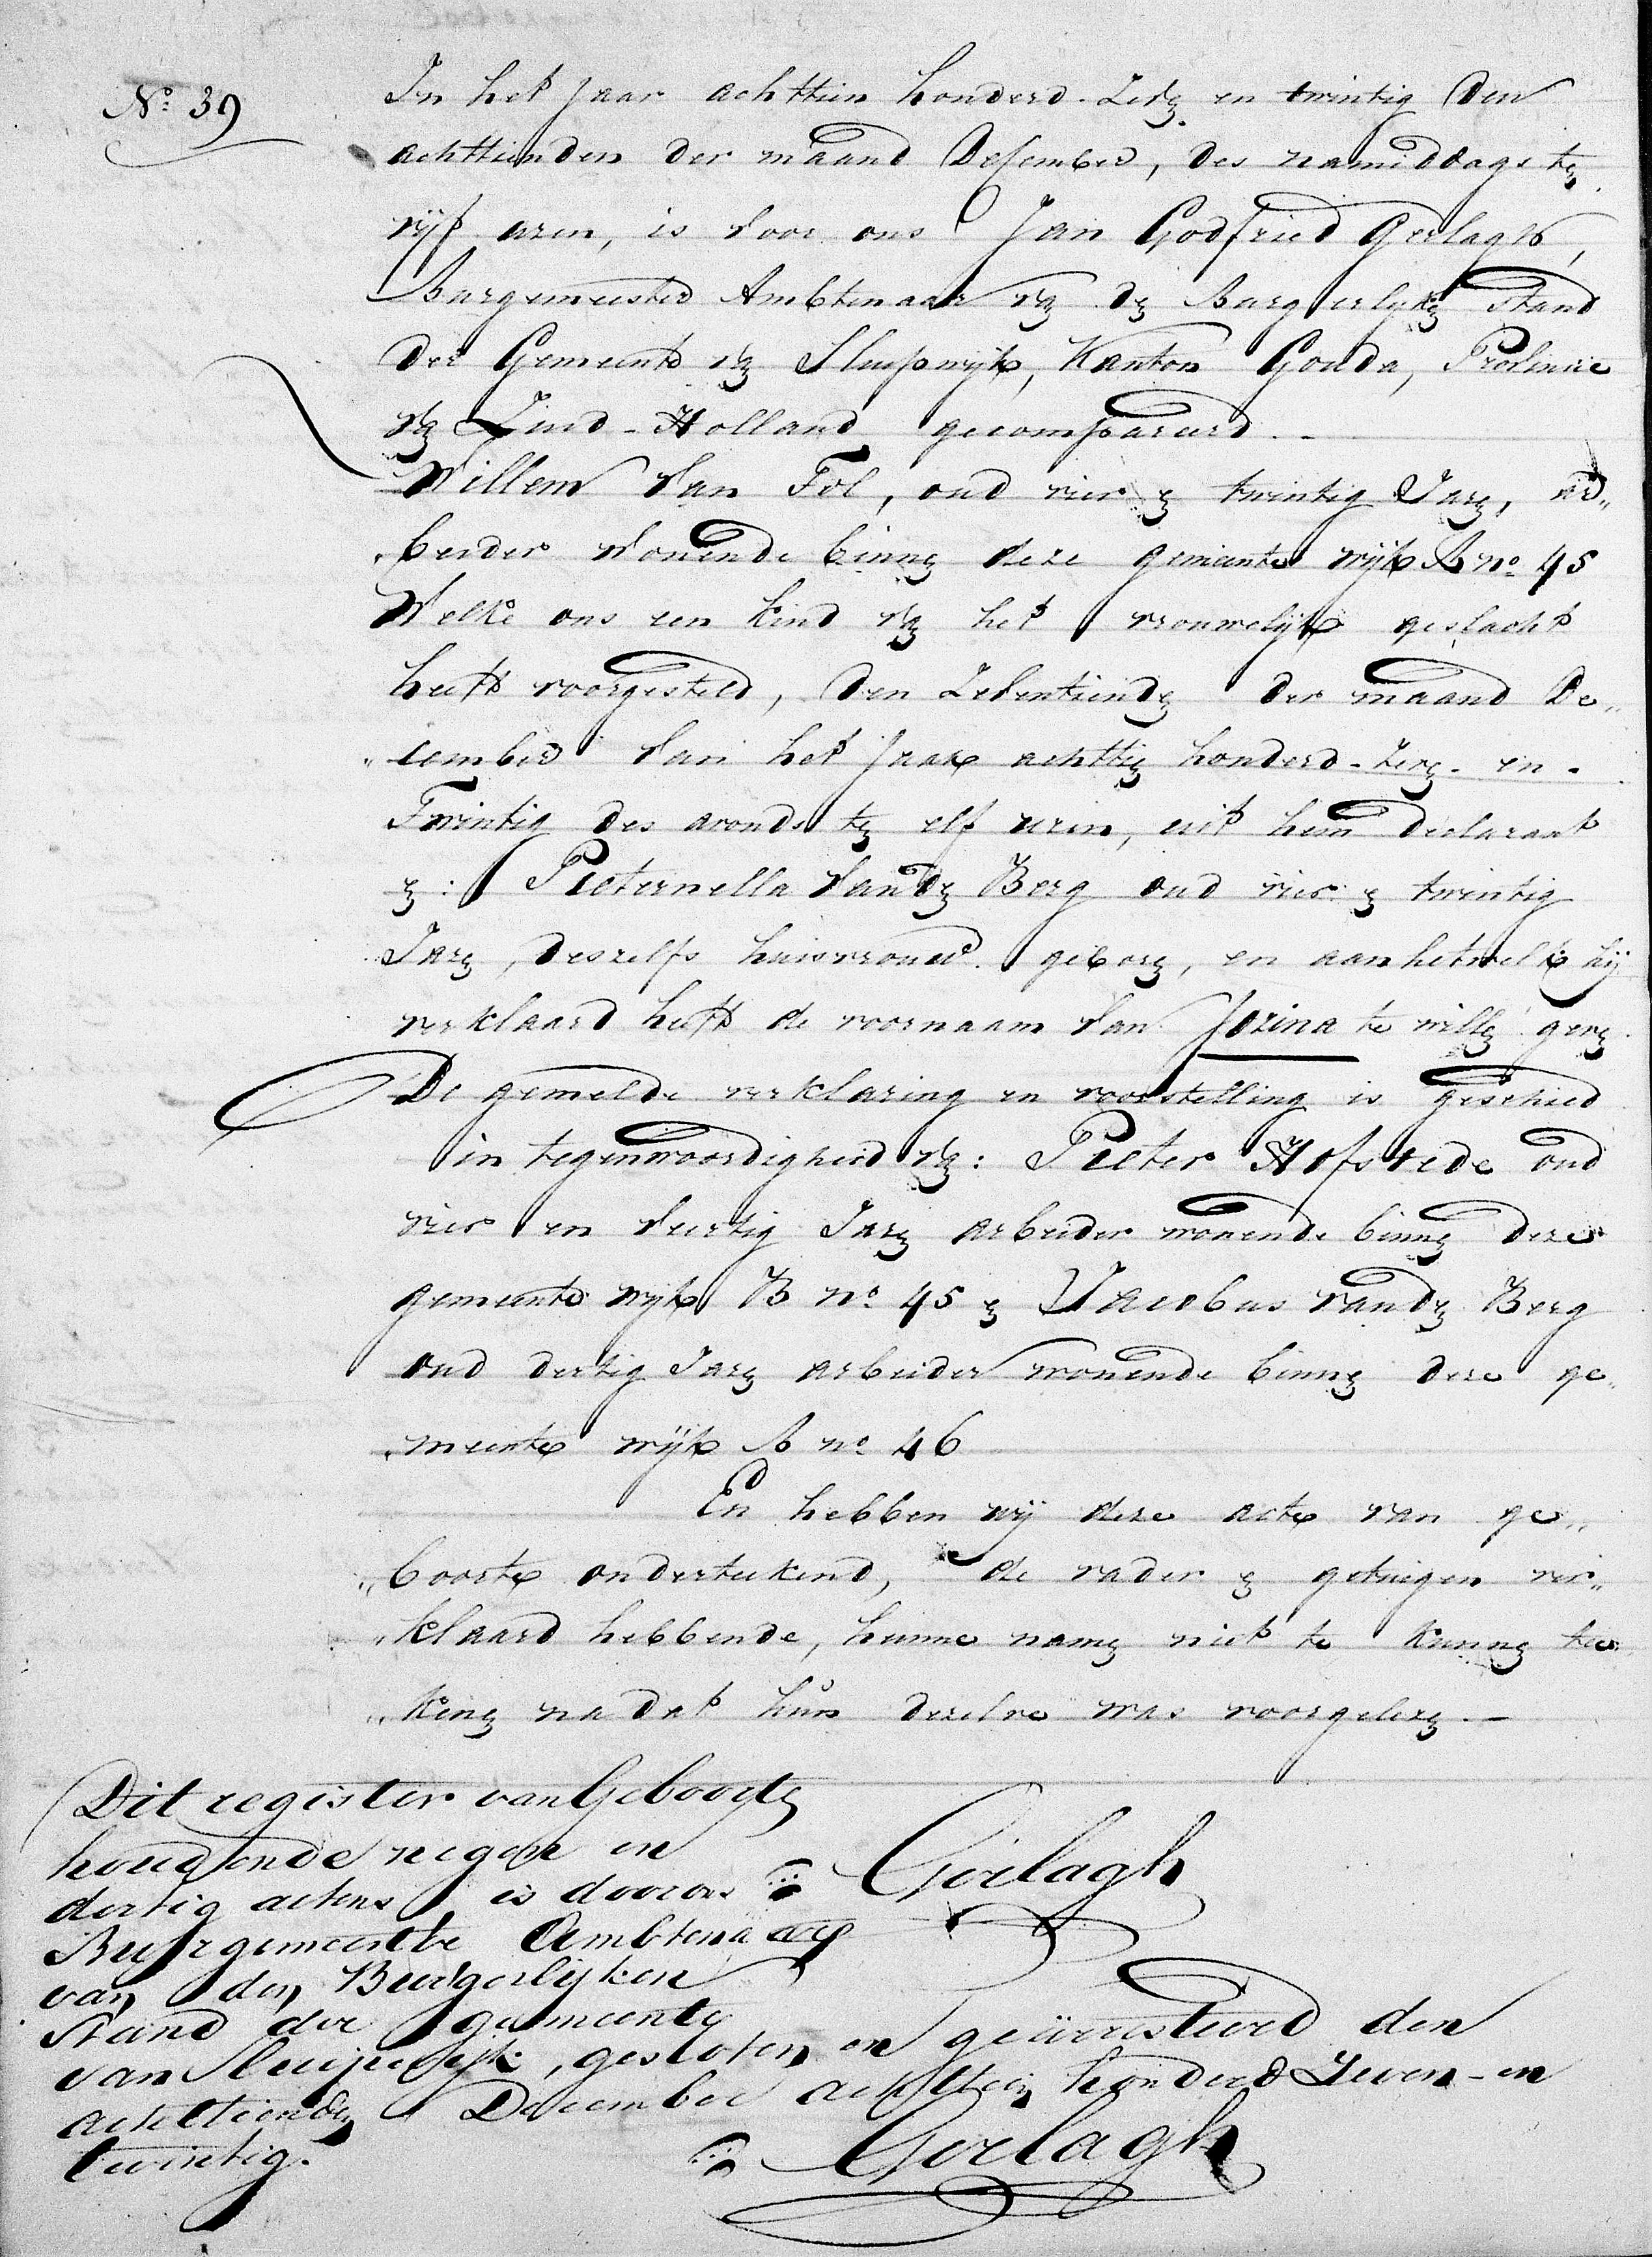 No. 39
In het Jaar achttien honderd Zeven en twintig den
achttienden der maand December, des namiddags ten
vijf uren, is voor ons Jan Godfried Gerlagh,
Burgemeester Ambtenaar van den Burgerlyken Stand
der Gemeente van Sluipwijk, Kanton Gouda, Provincie
van Zuid-Holland gecompareerd. -
Willem van Tol, oud vier en twintig Jaren, ar„
„beider wonende binnen deze gemeente wijk A no 45
Welke ons een kind van het vrouwelijk geslacht
heeft voorgesteld, den Zeventienden der maand De„
„cember van het Jaar achttien honderd-zeven-en-
Twintig des avonds ten elf uren, uit hem declarant
en: Pieternella van den Berg oud vier en twintig
Jaren, deszelfs huisvrouw geboren, en aan hetwelk hij
verklaard heeft de voornaam van Jozina te willen geven.
De gemelde verklaring en voorstelling is geschied
in tegenwoordigheid van: Pieter Hofstede oud
vier en veertig Jaren arbeider wonende binnen deze
gemeente wijk B no 45 en Jacobus van den Berg
oud dertig Jaren arbeider wonende binnen deze ge„
„meente wijk A no 46
En hebben wij deze acte van ge„
„boorte onderteekend, de vader en getuigen ver„
„klaard hebbende, hunne namen niet te kunnen tee„
„kenen na dat hun dezelve was voorgelezen. -
Dit register van Geboorten
houdende negen en
dertig actens is door ons
Gerlagh
Burgemeester Ambtenaar
van den Burgerlijken
Stand der gemeente
van Sluipwijk, gesloten en geärresteerd den
achttienden December achttien honderd Zeven-en
twintig.
Gerlagh